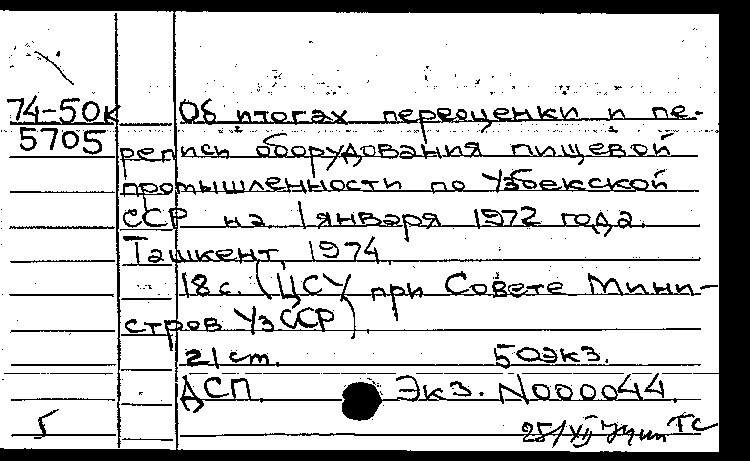 74-50к Об итогах переоценки и пе-
5705 реписи оборудования пищевой
промышленности по Узбекской
ССР на 1 января 1972 года.
Ташкент, 1974.
18 с. (ЦСУ при Совете Мини-
стров УзССР).
21 ст. 50 экз.
ДСП. Экз. №000044.
5 25/XII ТС